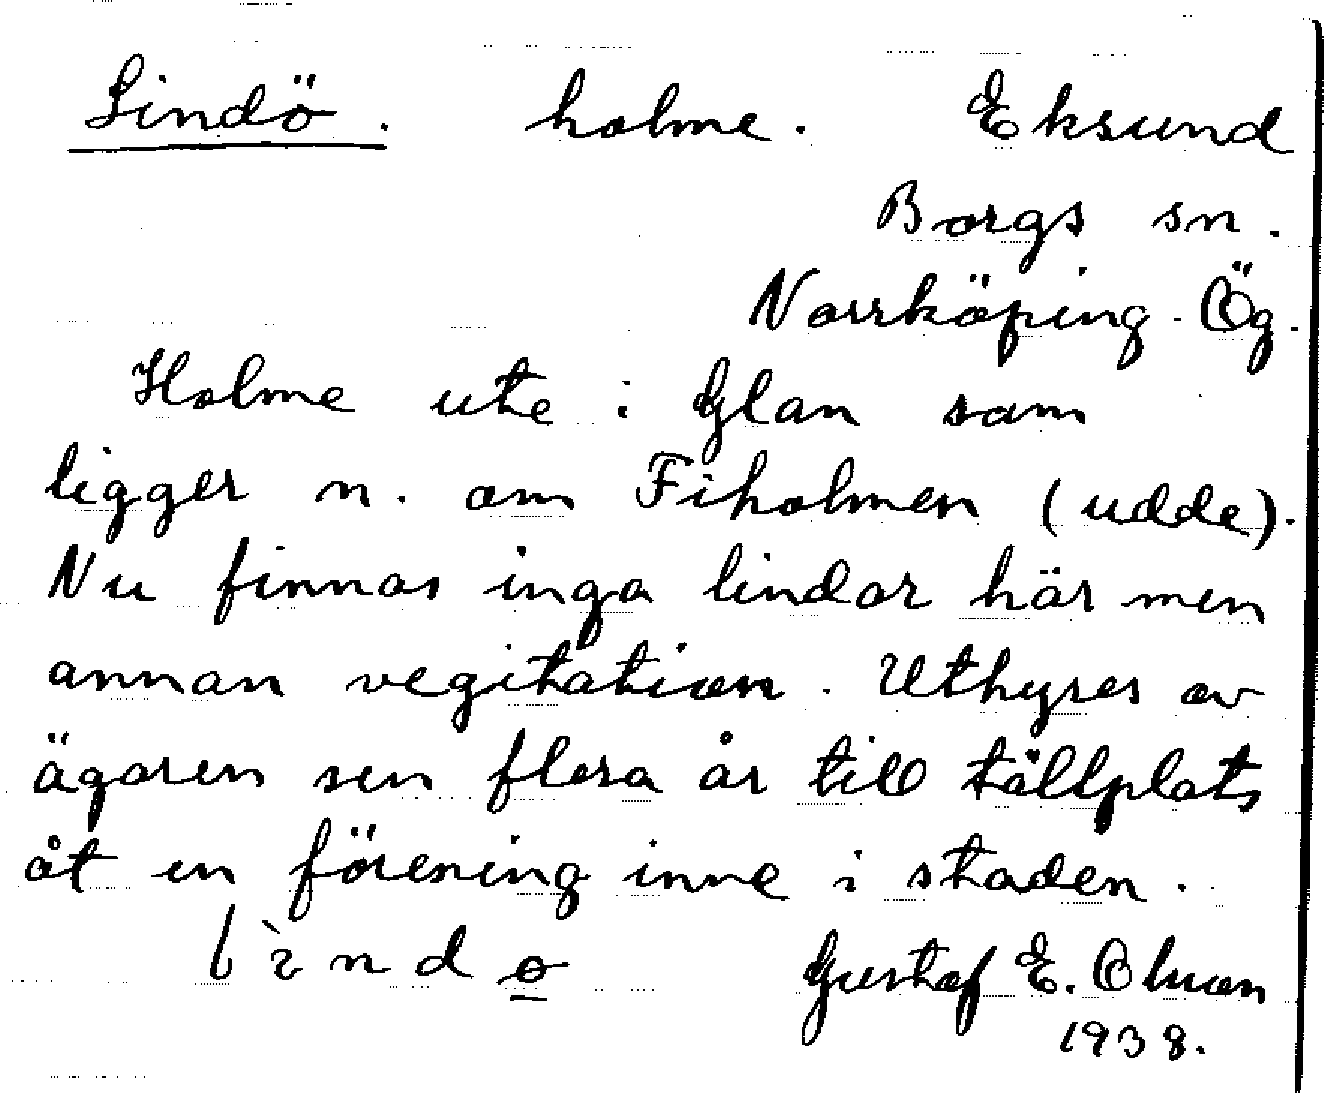 Lindö. holme. Eksund
Borgs sn.
Norrköping. Ög.
Holme ute i Glan som
ligger n. om Fiholmen (udde).
Nu finnas inga lindar här men
annan vegitation. Uthyres av
ägaren sen flera år till tältplats
åt en förening inne i staden.
Gustaf E. Olsson
1938.